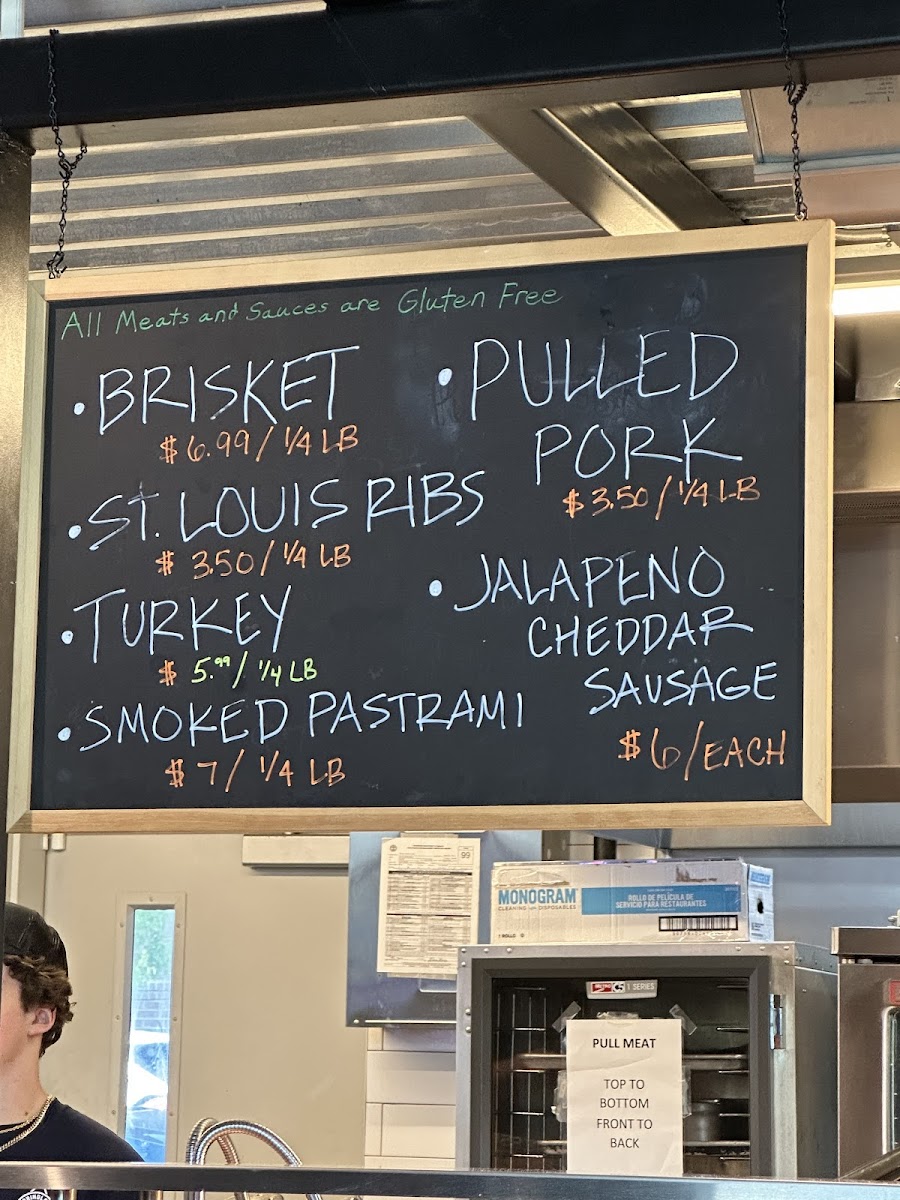 All Meats and Sauces are Gluten Free
• BRISKET
$ 6.99 / 1/4 LB
• ST. LOUIS RIBS
$ 3.50 / 1/4 LB
• TURKEY
$ 5.99 / 1/4 LB
• SMOKED PASTRAMI
$ 7 / 1/4 LB
• PULLED
PORK
$ 3.50 / 1/4 LB
• JALAPENO
CHEDDAR
SAUSAGE
$ 6 / EACH
99
MONOGRAM
CLEANING and DISPOSABLES
ROLLO DE PELÍCULA DE
SERVICIO PARA RESTAURANTES
1 ROLLO
METRO C5 1 SERIES
PULL MEAT
TOP TO
BOTTOM
FRONT TO
BACK